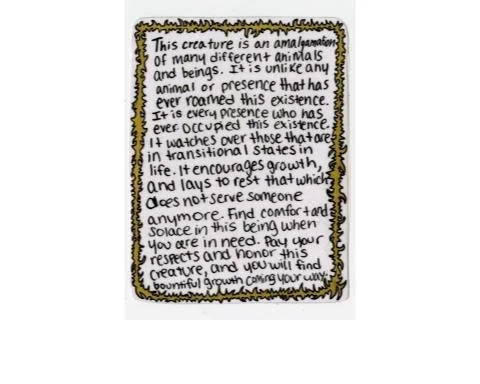 This creature is an amalgamation
of many different animals
and beings. It is unlike any
animal or presence that has
ever roamed this existence.
It is every presence who has
ever occupied this existence.
It watches over those that are
in transitional states in
life. It encourages growth,
and lays to rest that which
does not serve someone
anymore. Find comfort and
solace in this being when
you are in need. Pay your
respects and honor this
creature, and you will find
bountiful growth coming your way.